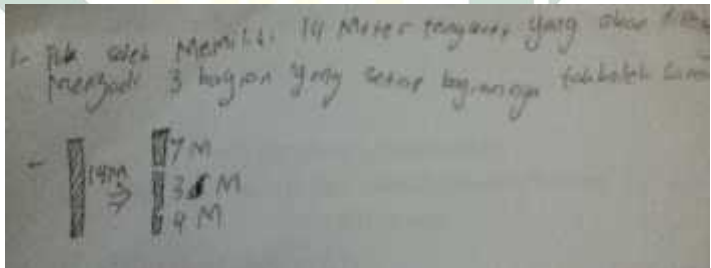 1- Pak soleh Memiliki 14 Meter yang akan
Menjadi 3 bagian yang setiap bagiannya tak boleh sama
- 14M ⇒ 7 M
3 M
4 M